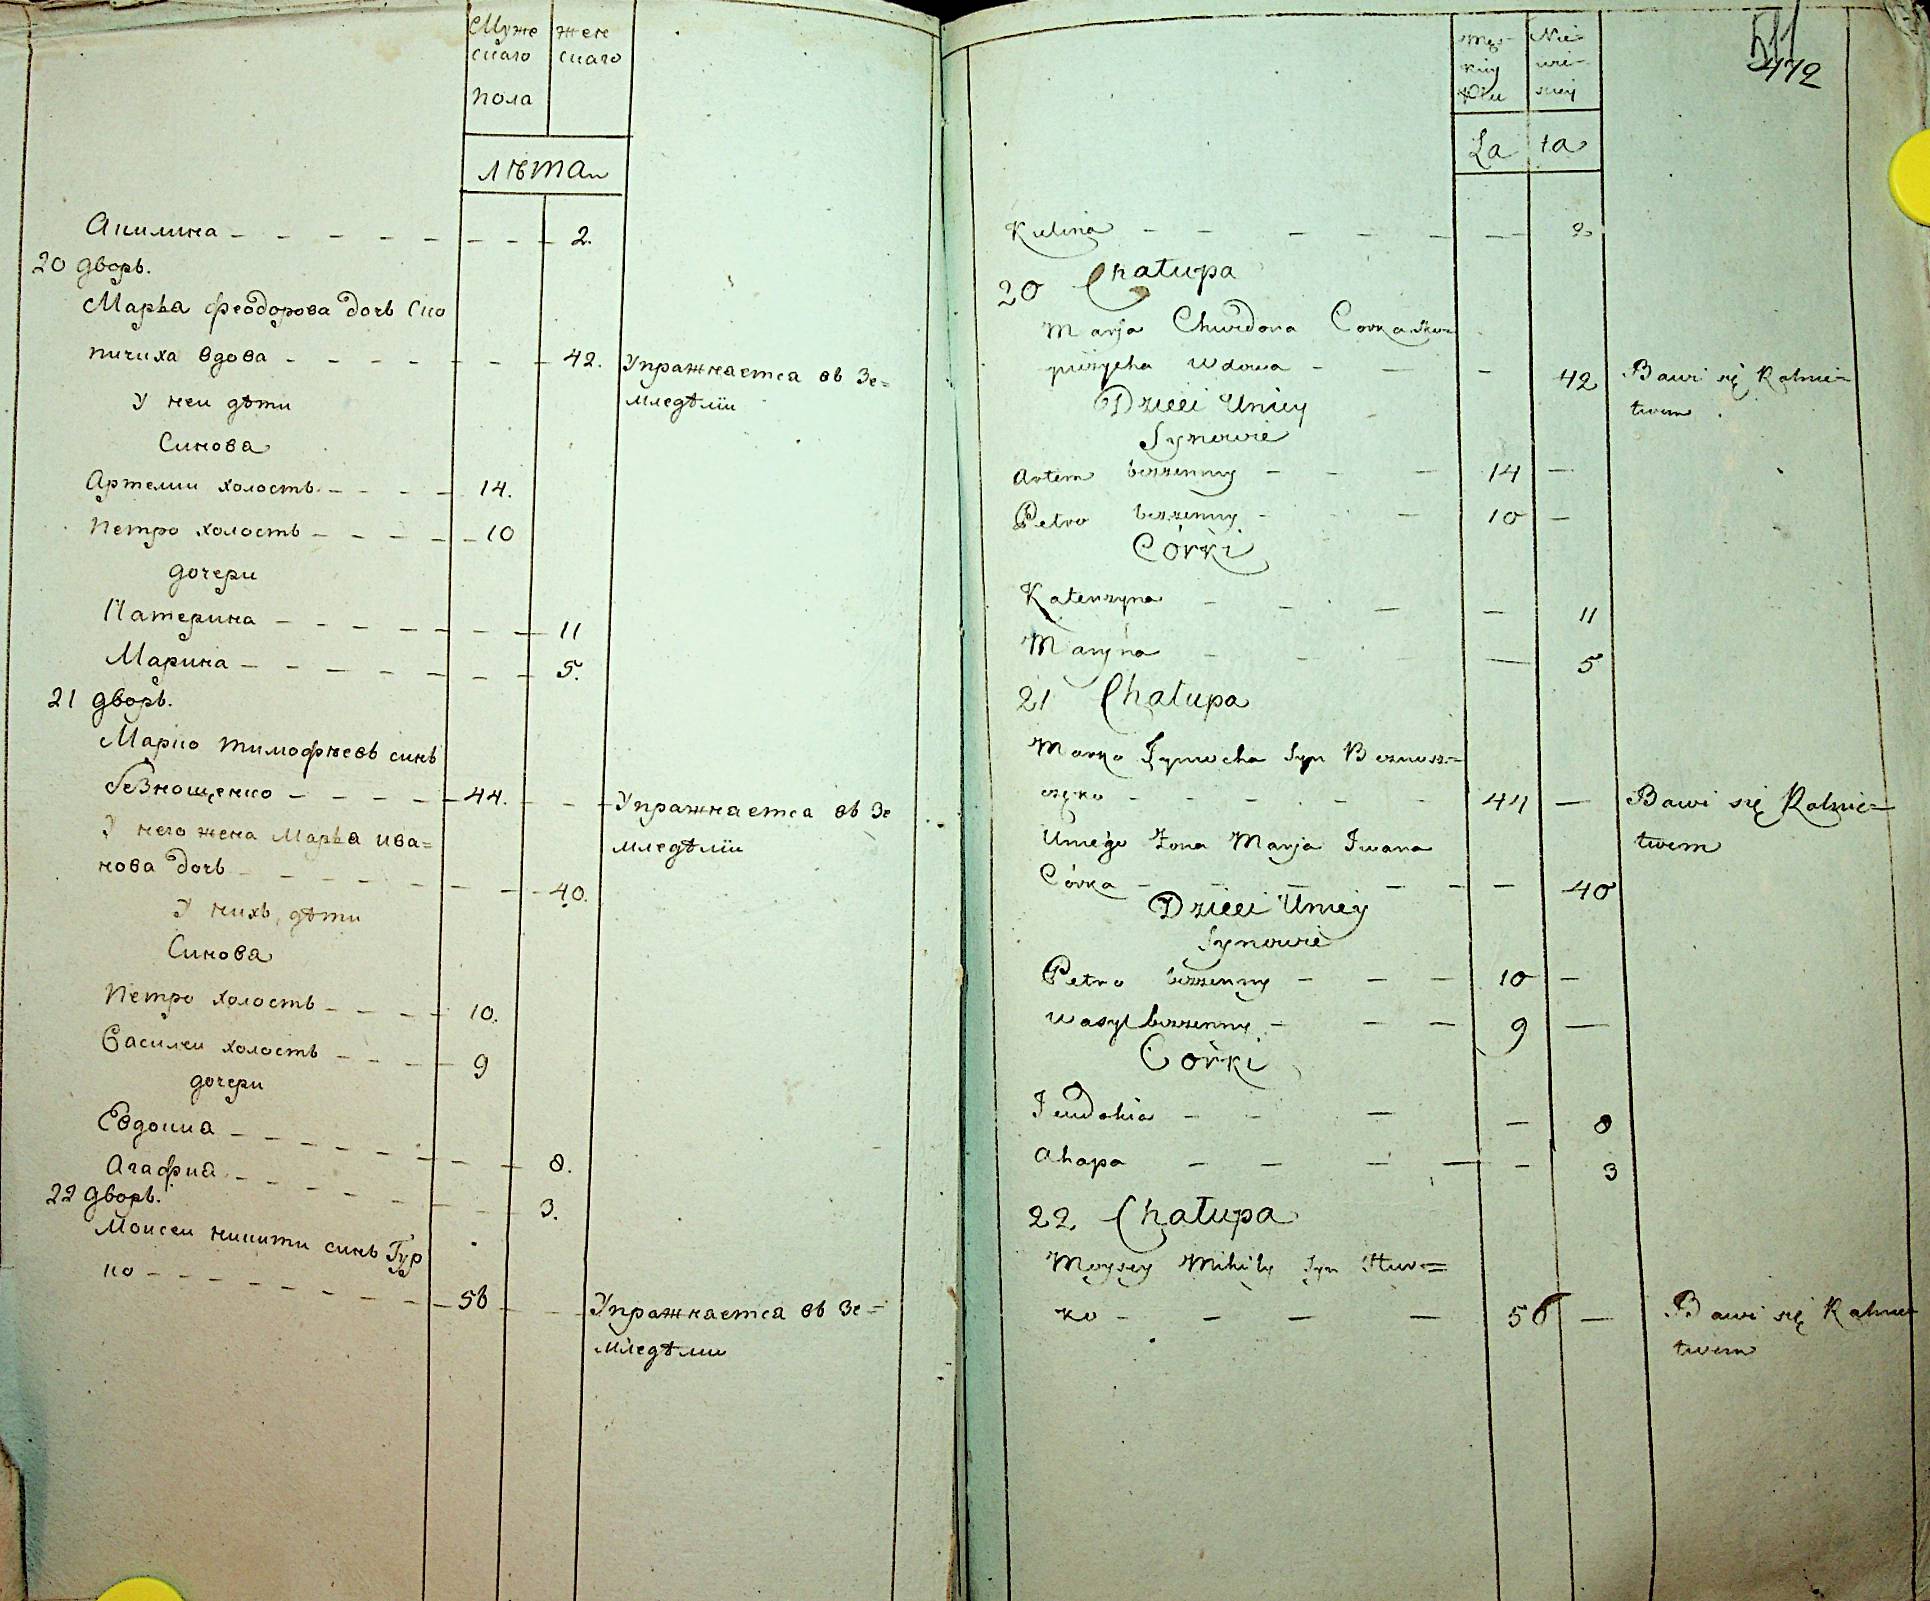 Муже жен
скаго скаго
пола
лѣта
Акилина - - - - - - - 2.
20 дворъ.
Марья феодорова дочь Ско
пичиха вдова - - - - - - 42. Упражнается въ Зе=
мледѣлїи
У ней дѣти
Синова
Артемии холостъ - - - - 14.
Петро холостъ - - - - - 10
дочери
Катерина - - - - - - - 11
Марина - - - - - - - - 5.
21 дворъ.
Марко тимофѣевъ синъ
безнощенко - - - - - 44. - - - Упражнается въ Зе
мледѣлїи
У него жена Марья ива=
нова дочь - - - - - - - - 40.
У нихъ дѣти
Синова
Петро холостъ - - - - 10.
Василеи холостъ - - - - 9
дочери
Евдокиа - - - - - - - - 8.
Агафиа - - - - - - - - 3.
22 дворъ.
Моисеи никити синъ Гур
ко - - - - - - - - 56 - - - Упражнается въ Зе=
мледѣлии
Męz- Nie-
kiey wie-
Płci sciey
La ta
511
472
Kulina - - - - - - 2
20 Chałupa
Marja Chwedora Corka Sko-
piczycha wdowa - - - 42 Bawi się Rolnic-
twem
Dzieci Uniey
Synowie
Artem bezzenny - - - 14 -
Petro bezzenny - - 10 -
Córki
Katerzyna - - - - 11
Maryna - - - - 5
21 Chałupa
Marko Tymocha Syn Beznosz=
częko - - - - - - 44 - Bawi się Rolnic=
twem
Uniego Zona Marja Iwana
Córka - - - - - - 40
Dzieci Uniey
Synowie
Petro bezzenny - - - 10 -
Wasyl bezzenny - - - 9 -
Córki
Jewdokia - - - - 8
Ahapa - - - - - 3
22 Chałupa
Moysey Mikity Syn Hur=
ko - - - - 56 - Bawi się Rolnic-
twem